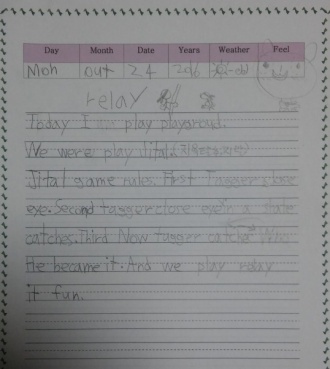 Day Month Date Years Weather Feel
Moh out 24 2016
relay
Today I am play playground.
We were play Jital.
Jital game rules. First Tagger close
eye. Second tagger close eye
catches. Third Now tagger catches Who
He became it. And we play relay
it fun.